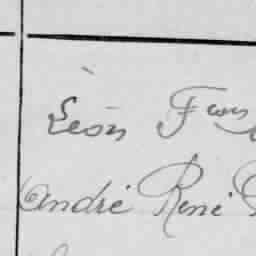 Léon
André René